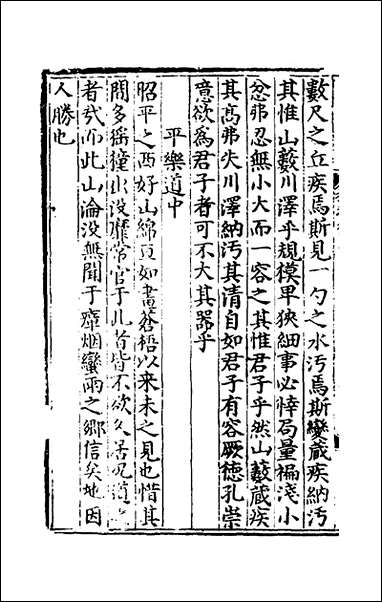 數尺之丘疾焉斯見一勺之水汚焉斯變藏疾納汚
其惟山藪川澤乎規模卑狹細事必悻局量褊淺小
忿弗忍無小大而一容之其惟君子乎然山藪藏疾
其高弗失川澤納汚其清自如君子有容厥德孔崇
意欲爲君子者可不大其器乎
平樂道中
昭平之西好山綿亘如畵蒼梧以來未之見也惜其
間多猺獞出没靡常官于此者皆不欲久居况道
者哉而此山淪没無聞于瘴烟蠻雨之鄉信矣地因
人勝也